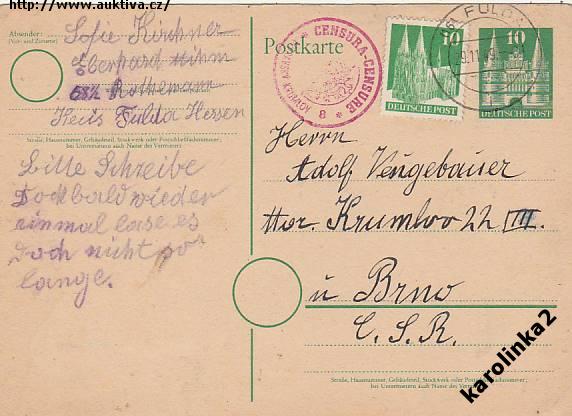 http://www.auktiva.cz/
Absender:
Sofie Kirchner
Eberhard Mihm
68½ Rothemann
Kreis Fulda Hessen
Straße, Hausnummer, Gebäudeteil, Stockwerk oder Postschließfachnummer;
bei Untermietern auch Name des Vermieters
Bitte Schreibe
Doch bald wieder
einmal lase es
Doch nicht so
lange.
Postkarte
CENSURA-CENSURE
8
10
DEUTSCHE POST
FULDA
10
DEUTSCHE POST
Herrn
Adolf Neugebauer
Mor. Krumlov 22 III.
u Brno
C. S. R.
Straße, Hausnummer, Gebäudeteil, Stockwerk oder Postschließfachnummer;
bei Untermietern auch Name des Vermieters
karolinka2